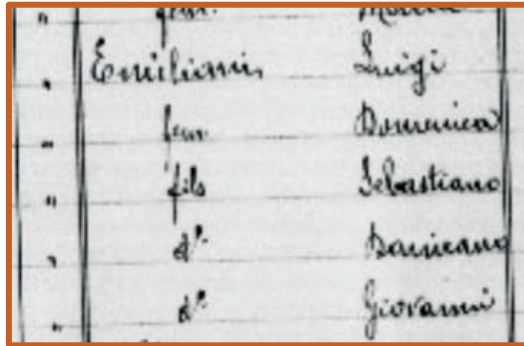 " fem.
" Emiliani Luigi
" fem. Domenica
" fils Sebastiano
" d°
" d° Giovanni